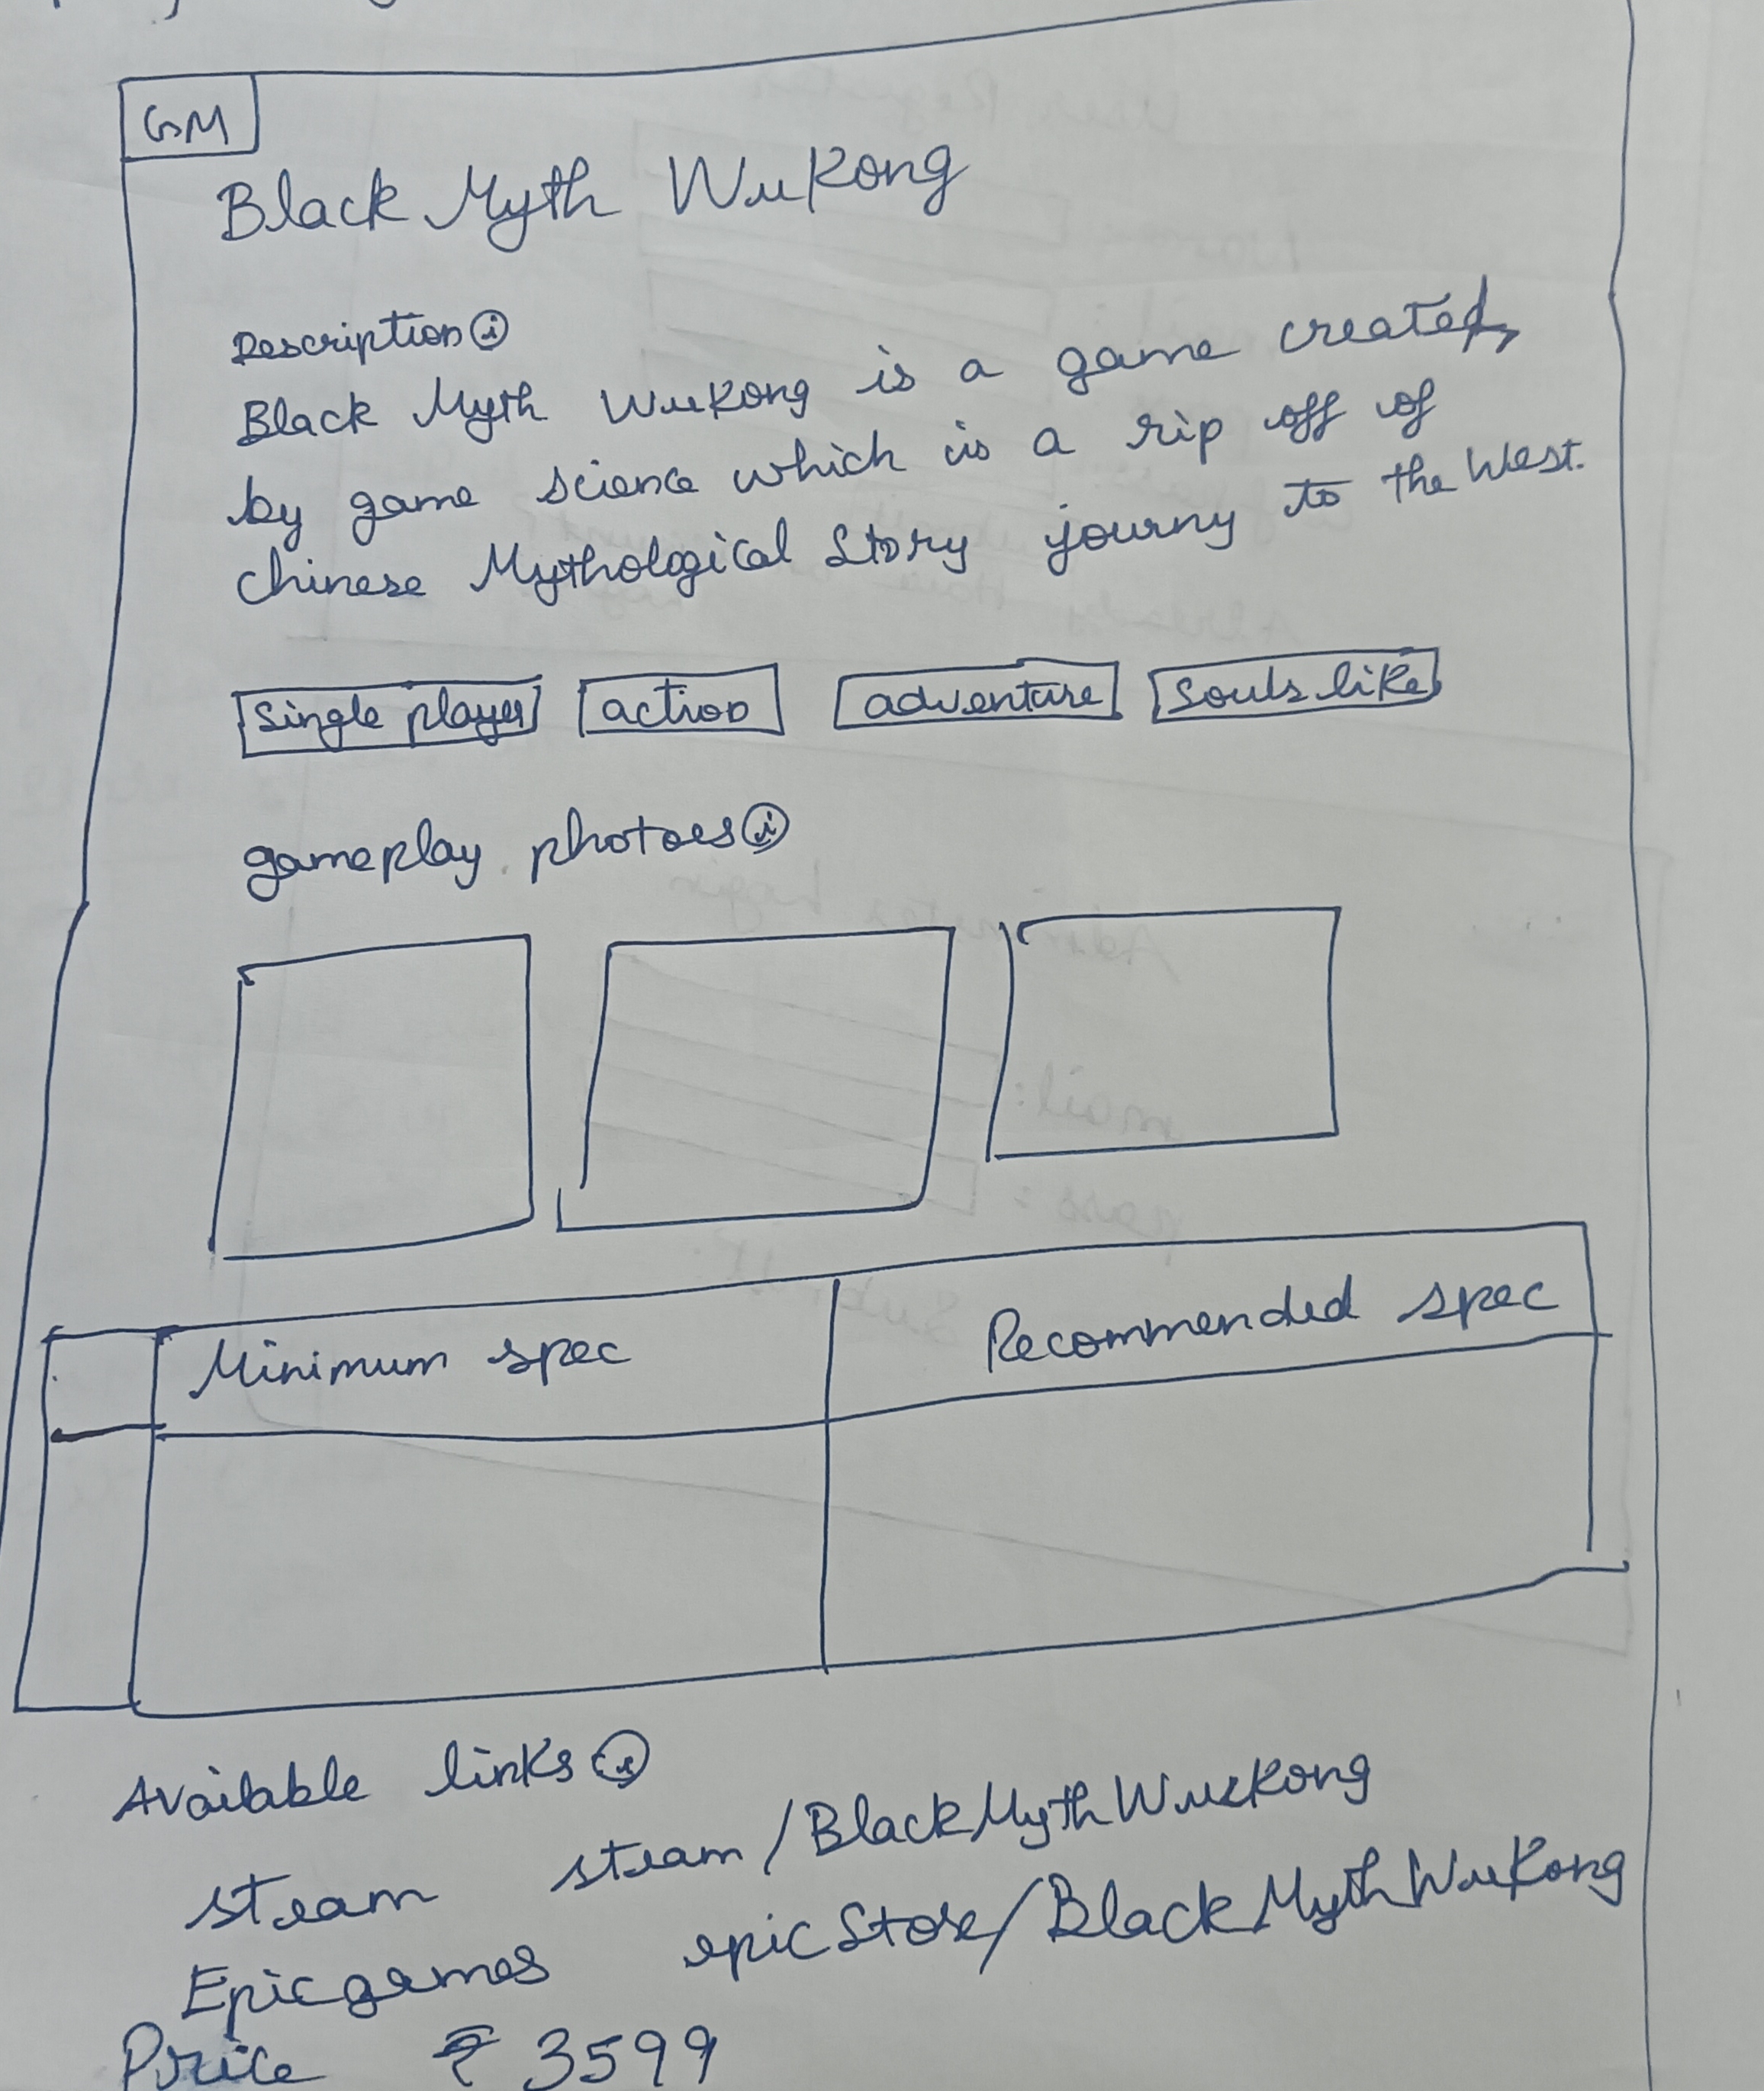 GM
Black Myth Wukong
Description i
Black Myth Wukong is a game created,
by game science which is a rip off of
chinese Mythological Story journy to the West.
single player action adventure souls like
gameplay photoes i
Minimum spec Recommended spec
Available links i
steam steam/BlackMythWukong
Epicgames epicStore/BlackMythWukong
Price ₹ 3599